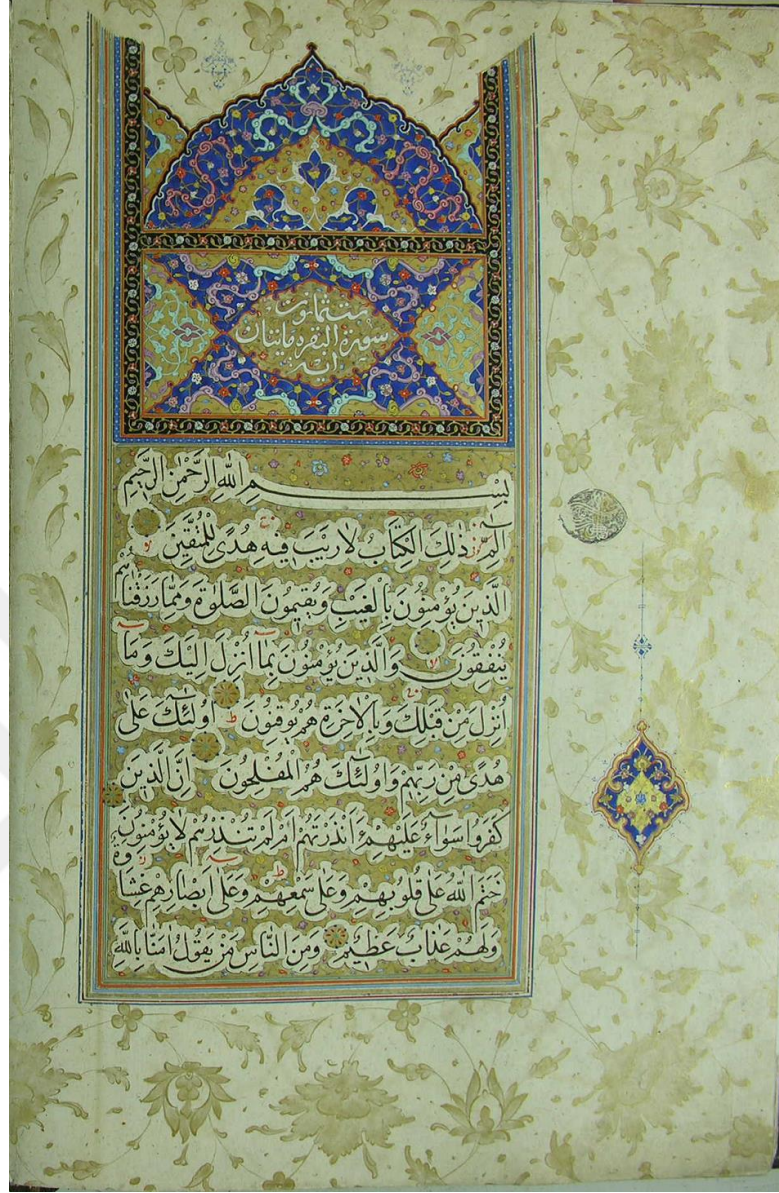 ست ثمانون
سورة البقره مايتان
آية
بِسْمِ اللّٰهِ الرَّحْمٰنِ الرَّحِيمِ
الٓمٓ ذٰلِكَ الْكِتَابُ لَا رَيْبَ فِيهِ هُدًى لِلْمُتَّقِينَ
الَّذِينَ يُؤْمِنُونَ بِالْغَيْبِ وَيُقِيمُونَ الصَّلٰوةَ وَمِمَّا رَزَقْنَاهُمْ
يُنْفِقُونَ وَالَّذِينَ يُؤْمِنُونَ بِمَٓا اُنْزِلَ اِلَيْكَ وَمَٓا
اُنْزِلَ مِنْ قَبْلِكَ وَبِالْاٰخِرَةِ هُمْ يُوقِنُونَ ط اُولٰٓئِكَ عَلٰى
هُدًى مِنْ رَبِّهِمْ وَاُولٰٓئِكَ هُمُ الْمُفْلِحُونَ اِنَّ الَّذِينَ
كَفَرُوا سَوَٓاءٌ عَلَيْهِمْ ءَاَنْذَرْتَهُمْ اَمْ لَمْ تُنْذِرْهُمْ لَا يُؤْمِنُونَ
خَتَمَ اللّٰهُ عَلٰى قُلُوبِهِمْ وَعَلٰى سَمْعِهِمْ ط وَعَلٰٓى اَبْصَارِهِمْ غِشَاوَةٌ
وَلَهُمْ عَذَابٌ عَظِيمٌ وَمِنَ النَّاسِ مَنْ يَقُولُ اٰمَنَّا بِاللّٰهِ